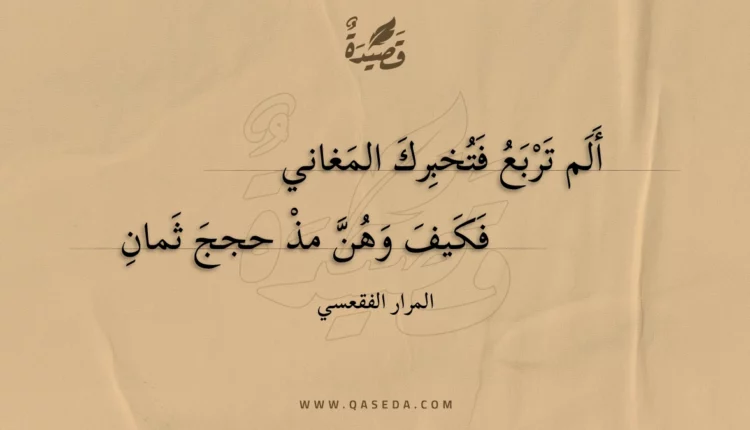 قَصِيدَةٌ
أَلَم تَرْبَعُ فَتُخبِركَ المَغاني
فَكَيفَ وَهُنَّ مذْ حججَ ثَمانِ
المرار الفقعسي
WWW.QASEDA.COM